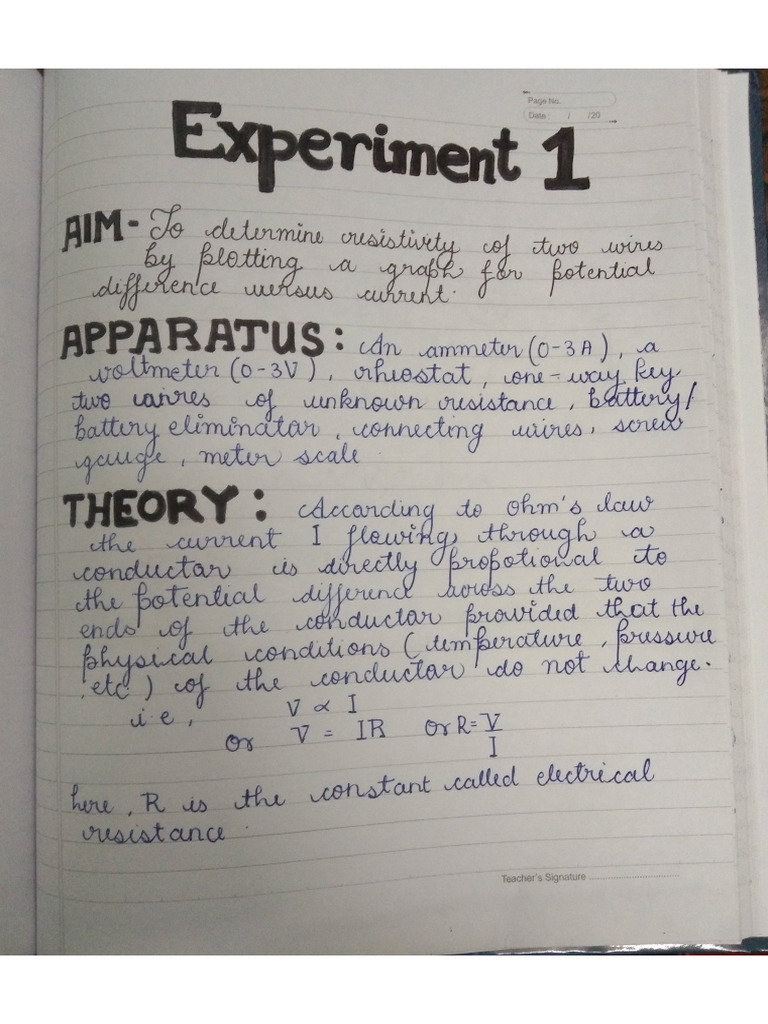 Page No.
Date / /20
Experiment 1
AIM- To determine resistivity of two wires
by plotting a graph for potential
difference versus current.
APPARATUS: An ammeter (0-3A), a
voltmeter (0-3V), rheostat, one-way key,
two wires of unknown resistance, battery/
battery eliminatar, connecting wires, screw
gauge, meter scale
THEORY: According to Ohm's law
the current I flowing through a
conductar is directly propotional to
the potential difference across the two
ends of the conductar provided that the
physical conditions (temperature, pressure
etc) of the conductar do not change.
i e, V ∝ I
or V = IR Or R = V/I
here, R is the constant called electrical
resistance
Teacher's Signature ..............................